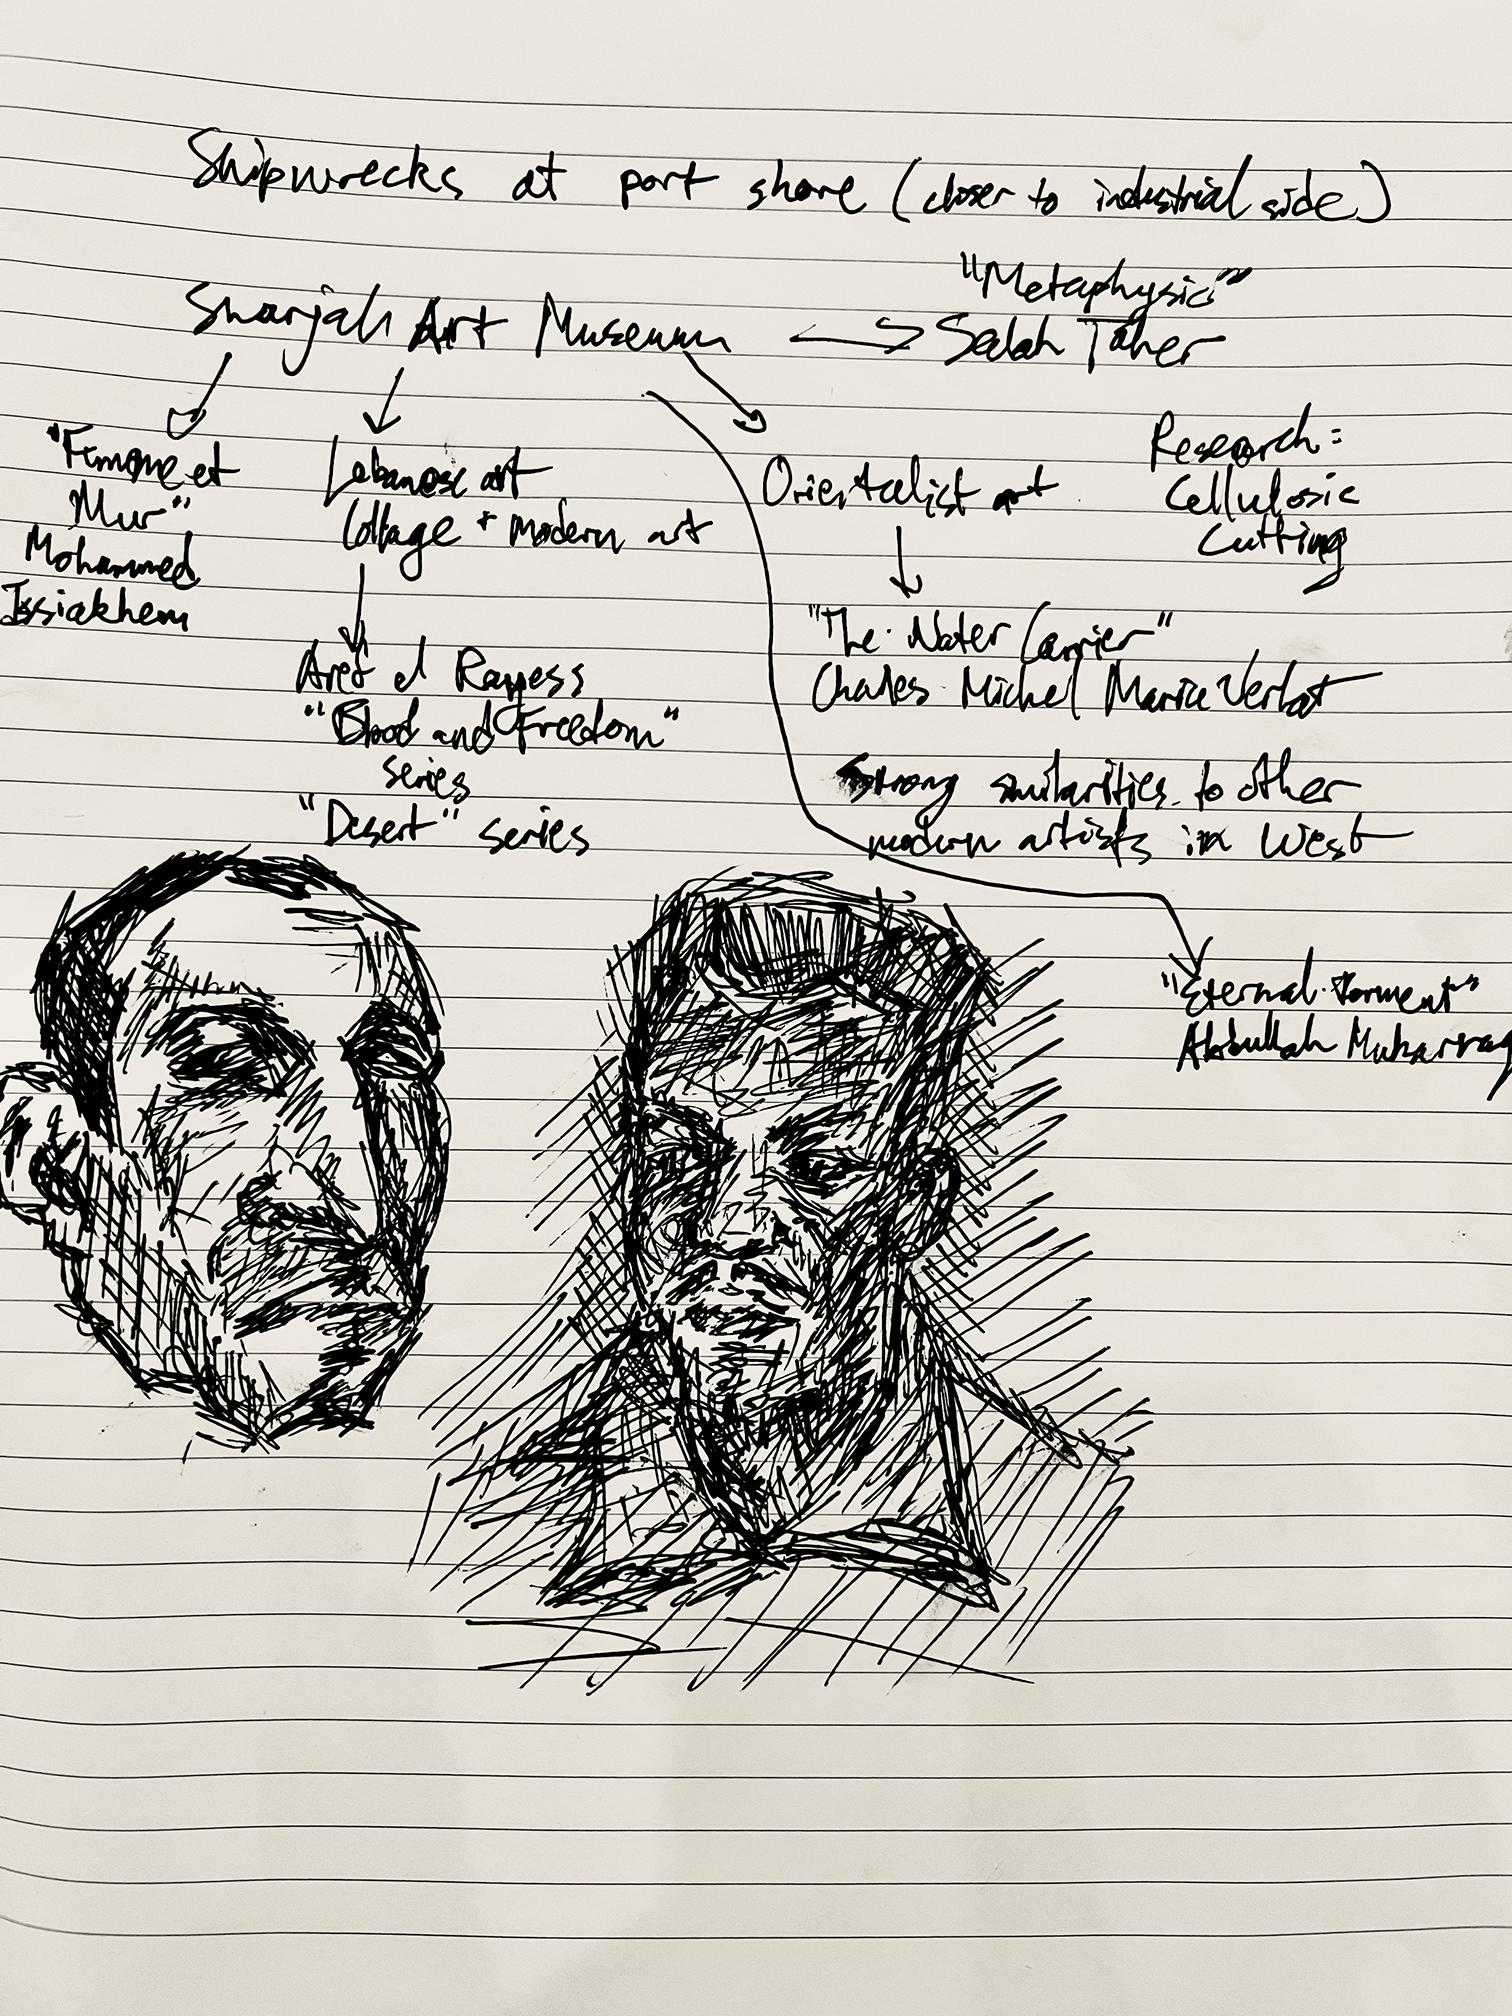 Shipwrecks at port shore (closer to industrial side)
"Metaphysics"
Sharjah Art Museum
Salah Taher
"Femme et
Mur"
Mohammed
Issiakhem
Lebanese art
Collage + modern art
Aref el Rayess
"Blood and Freedom"
series
"Desert" series
Orientalist art
"The Water Carrier"
Charles Michel Maria Verlat
Strong similarities to other
modern artists in West
Research:
Cellulosic
Cutting
"Eternal torment"
Abdullah Muharraq